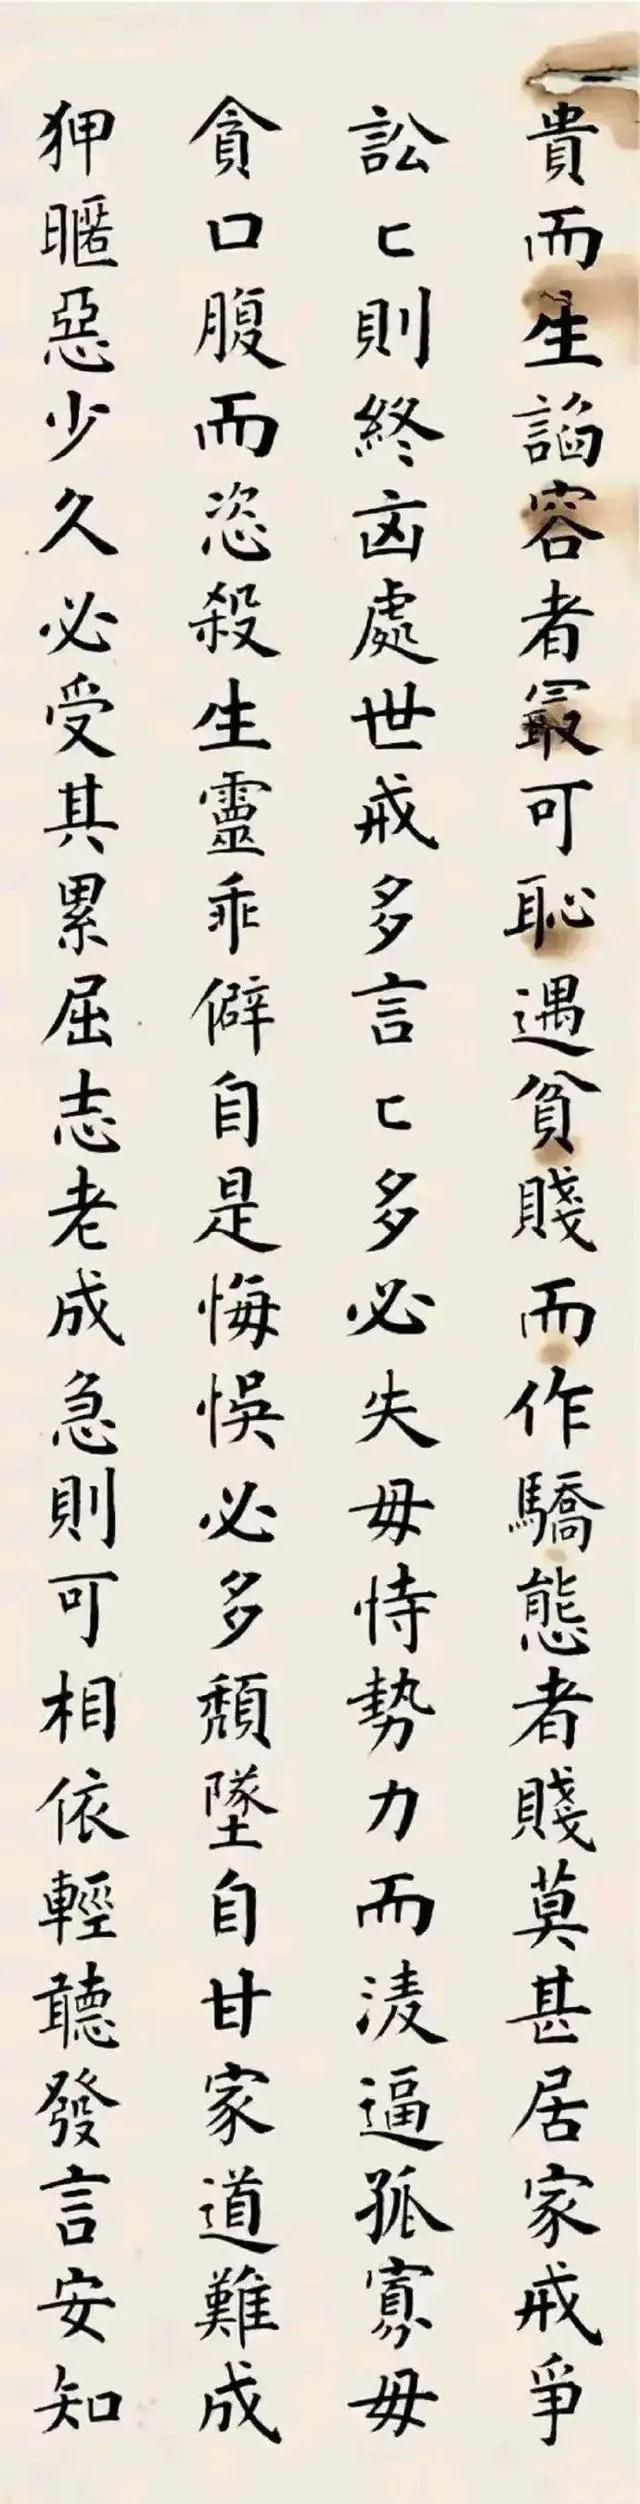 貴而生諂容者最可恥遇貧賤而作驕態者賤莫甚居家戒爭
訟〻則終凶處世戒多言〻多必失毋恃勢力而淩逼孤寡毋
貪口腹而恣殺生靈乖僻自是悔悞必多頹墜自甘家道難成
狎暱惡少久必受其累屈志老成急則可相依輕聽發言安知